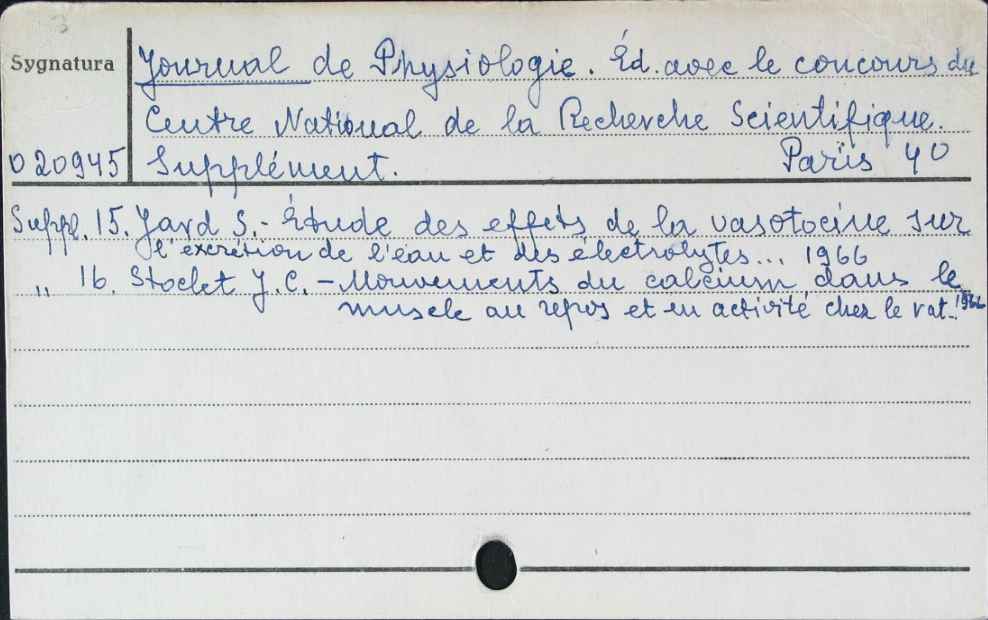 3
Sygnatura
Journal de Physiologie. Éd. avec le concours du
Centre National de la Recherche Scientifique.
020945 Supplément. Paris 40
Suppl. 15. Jard S. - Étude des effets de la vasotocine sur
l'excrétion de l'eau et des électrolytes... 1966
" 16. Stoclet J. C. - Mouvements du calcium dans le
muscle au repos et en activité chez le rat. 1966